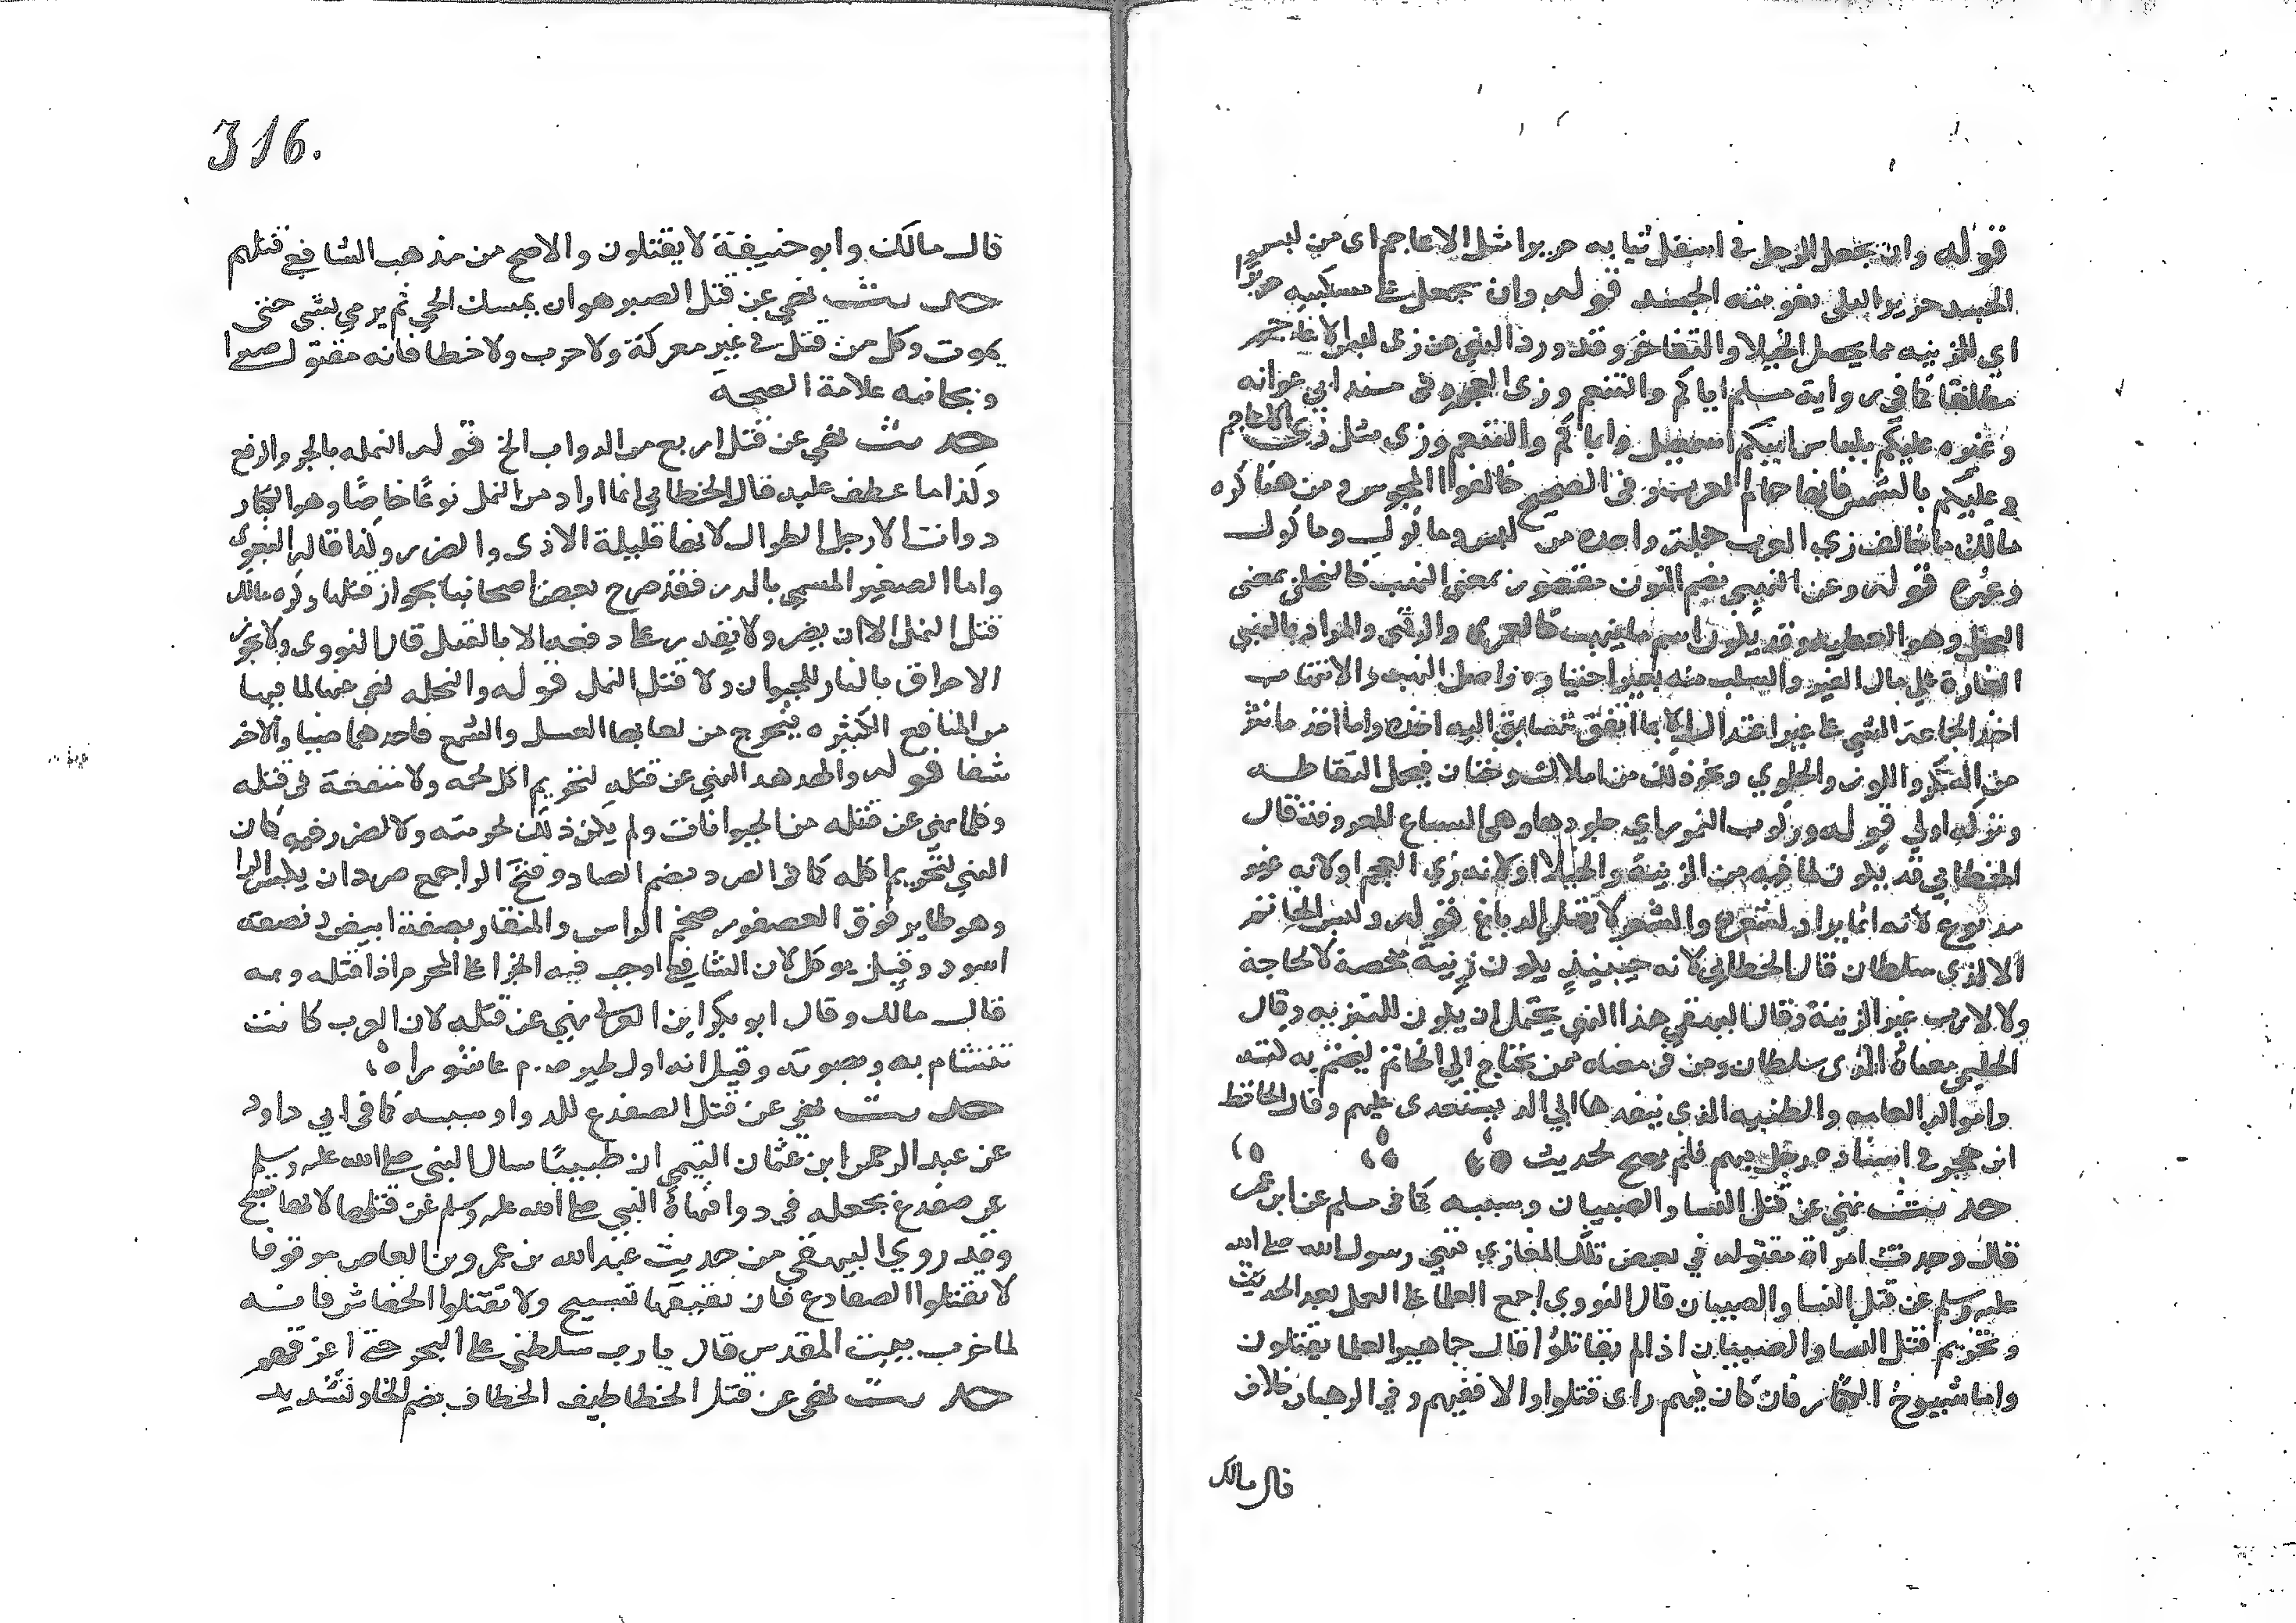 قوله وان يجعل الرجل في اسفل ثيابه حريرا مثل الاعاجم اى من لبس
الجسد حرير البلى نعومته الجسد قوله وان يجعل على منكبيه حريرا
اى للزينه مما يحصل الخيلا والتفاخر وقد ورد النهي عن زى الاعاجم
مطلقا كما في رواية مسلم اياكم والتنعم وزى العجم وفى مسند ابي عوانه
وغيره عليكم بلباس ابيكم اسمعيل واياكم والتنعم وزى مثل زى الاعاجم
وعليكم بالشمس فانها حمام العرب وفى الصحيح خالفوا المجوس ومن هنا كره
مالك ما خالف زي العرب جملة واحده من لبس وماكول وماكول
وغيره قوله وعن النهبى بضم النون مقصور بمعنى النهب كالنحلى بمعنى
النحل وهو العطيه وقد يكون اسم ما ينهب كالعمرى والرقبى والمراد بالنهبى
الغارة على مال الغير والسلب منه
اخذ الجماعة الشي على غير اعتدال الا بما اتفق لمن سابق اليه اخذه واما اخذ ما نثر
من السكر واللوز والحلوي ونحو ذلك من املاك وختان فيحل التقاطه
وتركه اولي قوله وركوب النمور اي جلودها وهى السباع المعروفة قال
الخطابي قد يكون لما فيه من الزينة والخيلا او لانه زي العجم او لانه غير
مدبوغ لانه انما يراد لشعره والشعر لا يقبل الدباغ قوله ولبس الخاتم
الا لذي سلطان قال الخطابي لانه حينئذ يكون زينه محضة لا لحاجة
ولا لارب غير الزينة وقال البيهقي هذا النهي يحتمل ان يكون للتنزيه وقال
الحليمي معناه الذى سلطان ومن في معناه ممن يحتاج الي الخاتم ليختم به كتبه
واموال العامه والطينه الذى ينفدها الي الذ يستعدى عليهم وقال الحافظ
ابن حجر في اسناده رجل مبهم فلم يصح لحديث
حديث نهي عن قتل النسا والصبيان وسببه كما فى مسلم عن ابن عمر
قال وجدت امراة مقتوله في بعض تلك المغازي فنهى رسول الله صلى الله
عليه وسلم عن قتل النسا والصبيان قال النووي اجمع العلما على العمل بهذ الحديث
وتحريم قتل النسا والصبيان اذا لم يقاتلوا قال جماهير العلما يقتلون
واما شيوخ الكفار فان كان فيهم راى قتلوا والا ففيهم وفي الرهبان خلاف
قال مالك
316.
قال مالك وابو حنيفة لا يقتلون والاصح من مذهب الشافعي قتلهم
حديث نهي عن قتل الصبر هو ان يمسك الحي ثم يرمي بشي حتى
يموت وكل من قتل في غير معركة ولا حرب ولا خطا فانه مقتول صبرا
وبجانبه علامة الصحة
حديث نهي عن قتل اربع من الدواب الخ قوله النمله بالجر والرفع
وكذا ما عطف عليه قال الخطابي انما اراد من النمل نوعًا خاصًا وهو الكبار
دوات الارجل الطوال لانها قليلة الاذى والضرر وكذا قاله البغوى
واما الصغير المسمي بالدر فقد صرح بعض اصحابنا بجواز قتلها وكره مالك
قتل النمل الا ان يضر ولا يقدر على دفعه الا بالقتل قال النووى ولا يجوز
الاحراق بالنار للحيوان ولا قتل النمل قوله والنحله نهي عنها لما فيها
من المنافع الكثيره يخرج من لعابها العسل والشمع فاحدهما ضيا والاخر
شفا قوله والهدهد النهي عن قتله لتحريم اكل لحمه ولا منفعة فى قتله
وكلما نهي عن قتله من الحيوانات ولم يكن ذلك لحرمته ولا لضرر فيه كان
النهي لتحريم اكله كما فى الصرد بضم الصاد وفتح الرا جمع صردان بكسر الرا
وهو طاير فوق العصفور ضخم الراس والمنقار بصفة ابيض ونصفه
اسود وقيل يوكل لان الشافعي اوجب فيه الجزا على المحرم اذا قتله وبه
قال مالك وقال ابو بكر ابن العربي نهي عن قتله لان العرب كانت
تتشام به وبصوته وقيل انه اول طير صام عاشوراه
حديث نهي عن قتل الضفدع للدوا وسببه كما في ابي داود
عن عبد الرحمن ابن عثمان التيمي ان طبيبًا سال النبى صلى الله عليه وسلم
عن ضفدع يجعله في دوا فنهاه النبي صلى الله عليه وسلم عن قتلها لانها تسبح
وقد روي البيهقي من حديث عبدالله بن عمرو بن العاص موقوفا
لا تقتلوا الضفادع فان نقيقها تسبيح ولا تقتلوا الخفاش فانه
لما خرب بيت المقدس قال يا رب سلطني على البحر حتى اغرقهم
حديث نهي عن قتل الخطاطيف الخطاف بضم الخا وتشديد